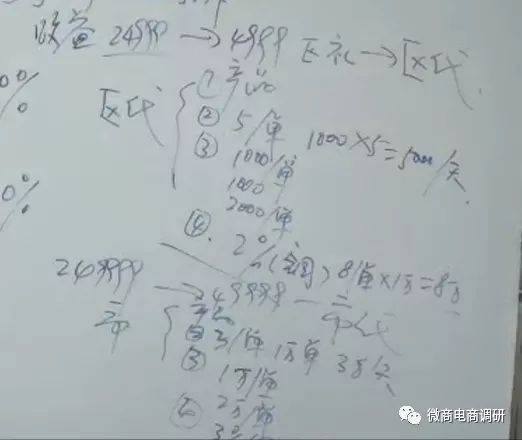 收益 24999 → 4999 区礼 → 区代
0%
区代
① 产品
② 5/单 1000×5=5000/天
③ 1000/单
1000
2000/单
0%
④ 2%(全国) 8单×1万=8万
249999 → 49998 — 市代
市
产品
② 3/单 1万/单 3万/天
③ 1万/单
④ 2万/单
3万/单
微商电商调研